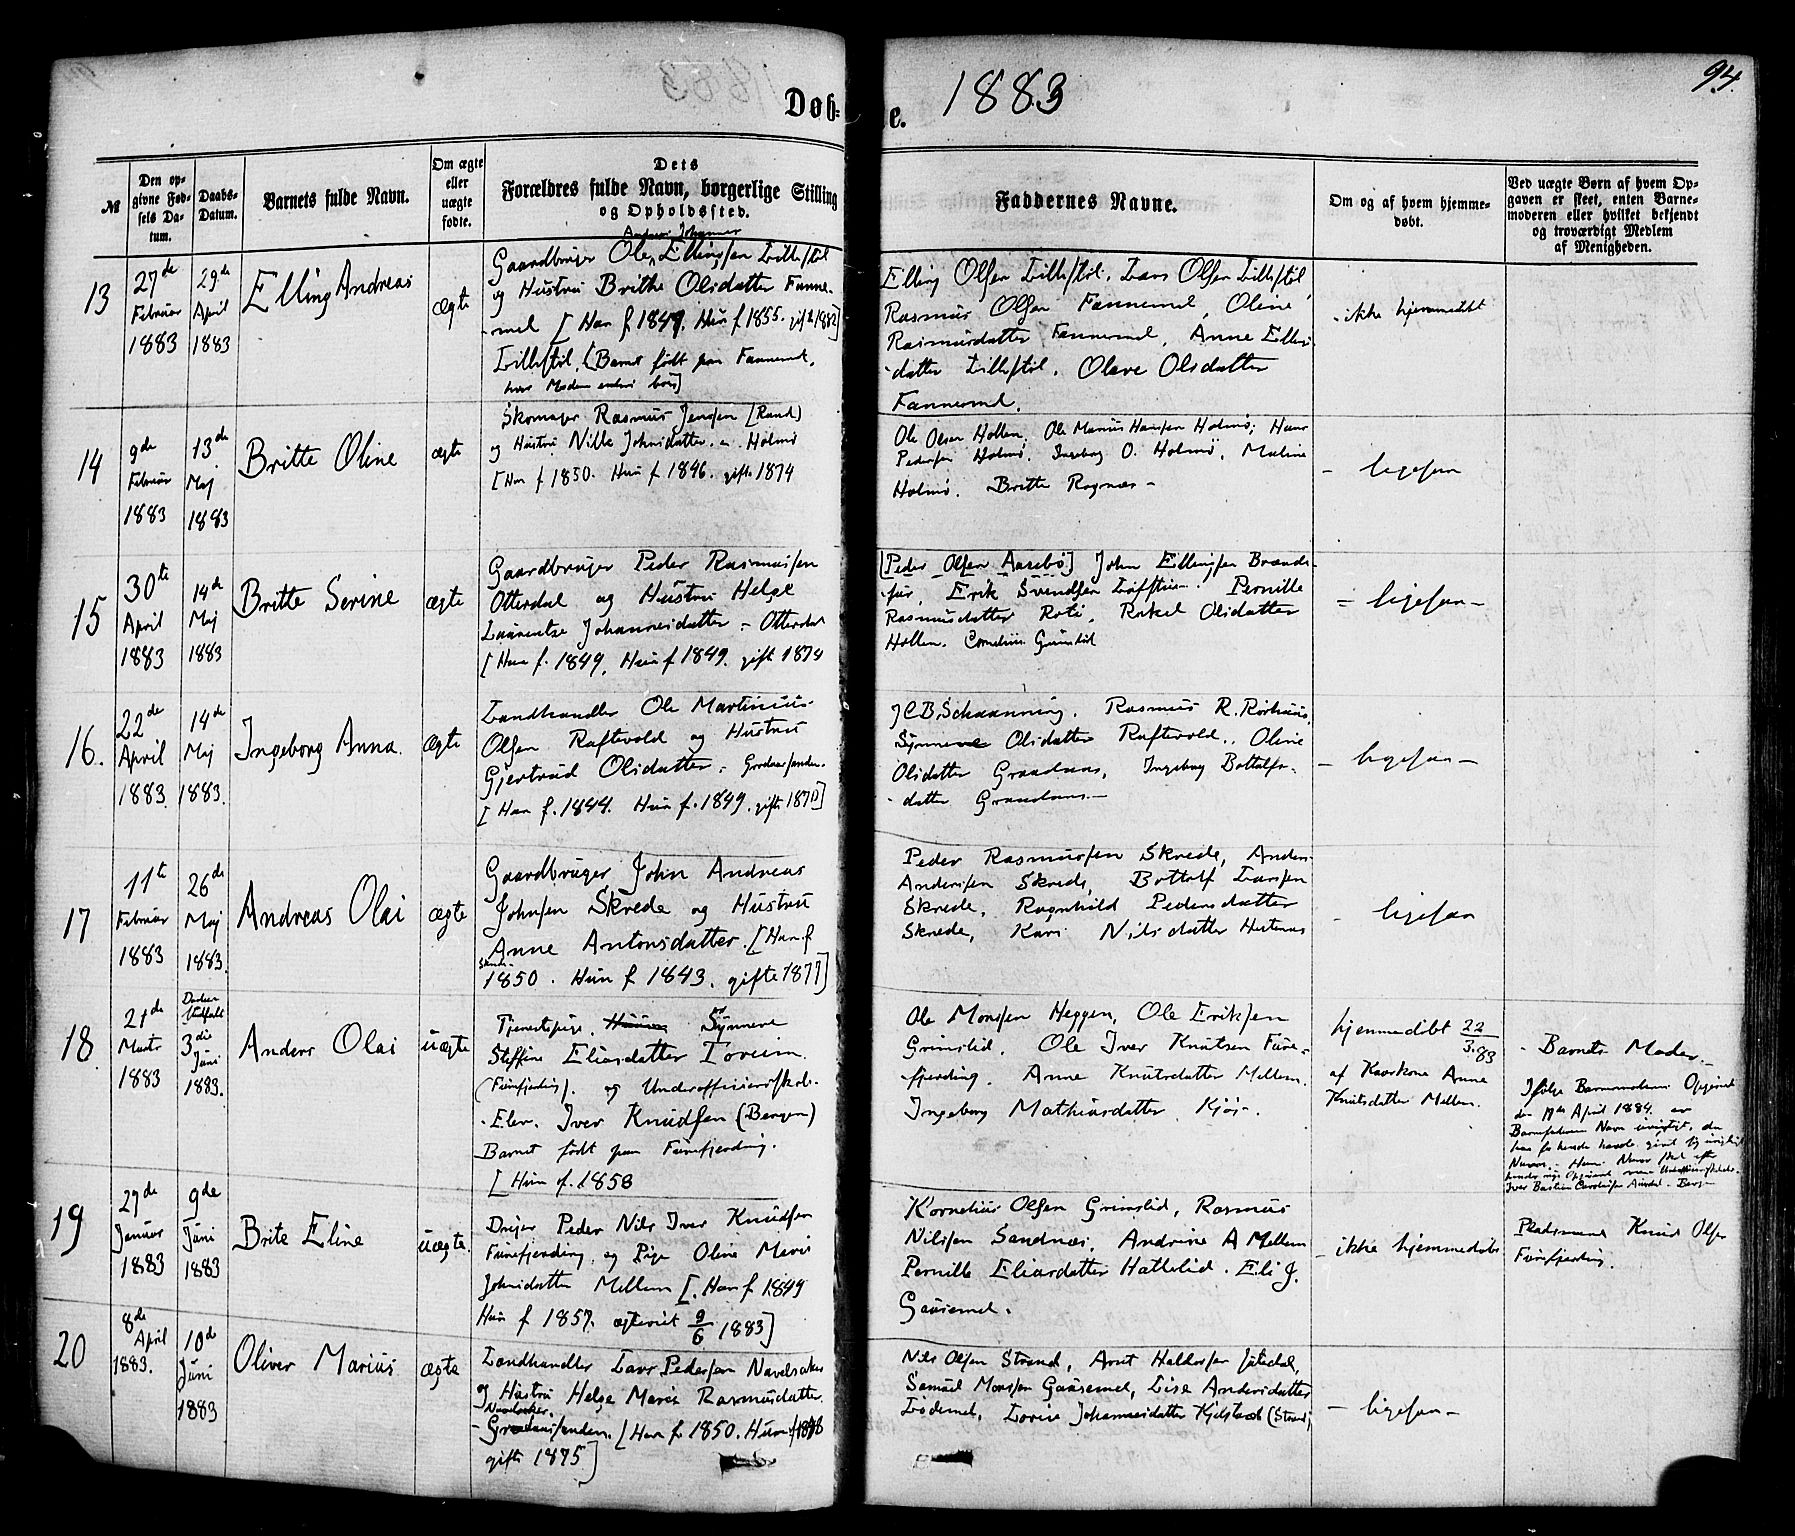 1883
94.
Døb-
e.
№
Den op-
givne Fød-
sels Da-
tum.
Daabs-
Datum.
Barnets fulde Navn.
Om ægte
eller
uægte
fødte.
Dets
Forældres fulde Navn, borgerlige Stilling
og Opholdssted.
Faddernes Navne.
Om og af hvem hjemme-
døbt.
Ved uægte Børn af hvem Op-
gaven er skeet, enten Barne-
moderen eller hvilket bekjendt
og troværdigt Medlem
af Menigheden.
13
27de
Februar
1883
29de
April
1883
Elling Andreas
ægte
Gaardbruger Ole Ellingsen Lillestøl
og Hustru Brithe Olsdatter Fanne-
mel [Han f 1849. Hun f 1855. gift 1882]
Lillestøl. [Barnet født paa Fannemel,
hvor Moderen endnu bor]
Elling Olsen Lillestøl, Lars Olsen Lillestøl,
Rasmus Olsen Fannemel, Oline
Rasmusdatter Fannemel, Anne Ellings-
datter Lillestøl. Olave Olsdatter
Fannemel.
- ikke hjemmedøbt
14
9de
Februar
1883
13de
Maj
1883
Britte Oline
ægte
Skomager Rasmus Jensen [Rand)
og Hustru Nille Johnsdatter. Holmø
[Han f 1830. Hun f 1846. gifte 1874
Ole Olsen Hollen, Ole Marius Hansen Holmø; Hans
Pedersen Holmø, Ingeborg O. Holmø, Maline
Holmø. Britte Rognæs -
- ligesaa
15
30te
April
1883
14de
Maj
1883
Britte Serine
ægte
Gaardbruger Peder Rasmussen
Otterdal og Hustru Helge
Laurentse Johannesdatter - Otterdal
[Han f. 1849, Hun f 1849. gift 1874
[Peder Olsen Aarebø] John Ellingsen Brænds-
før, Erik Svendsen. Pernille
Rasmusdatter Roti, Rakel Olsdatter
Hollen. Cornelius Grimslid
- ligesaa -
16.
22de
April
1883.
14de
Maj
1883.
Ingeborg Anna.
ægte
Landhandler Ole Martinius
Olsen Raftevold og Hustru
Gjertrud Olsdatter.
[Han f. 1844. Hun f. 1849. gifte 1870]
J C B Schaanning. Rasmus R. Rørhuus,
Synneve Olsdatter Raftevold., Oline
Olsdatter Graadaas, Ingeborg Bottolfs-
datter Graadaas. -
- ligesaa -
17
11te
Februar
1883
26de
Maj
1883.
Andreas Olai
ægte
Gaardbruger John Andreas
Johnsen Skrede og Hustru
Anne Antonsdatter. [Han f
1850. Hun f 1843. gifte 1877]
Peder Rasmussen Skrede, Anders
Andersen Skrede, Bottolf Larsen
Skrede, Ragnhild Pedersdatter
Skrede, Kari Nilsdatter Hestenes
- ligesaa
18
21de
Marts
1883
3die
Juni
1883.
Anders Olai
uægte
Tjenestepige. Synneve
Steffine Eliasdatter Loveim.
(Furefjerding). og Underofficiersskole-
- Elev. Iver Knudsen (Bergen)
Barnet født paa Furefjerding.
[Hun f. 1858
Ole Monssen Heggen, Ole Eriksen
Grimslid. Ole Iver Knutsen Fure-
fjerding. Anne Knutsdatter Mellem.
Ingeborg Mathiasdatter Kjøs -.
hjemmedøbt 22/3.83
af Kaarkone Anne
Knutsdatter Mellem.
- Barnets Moder. -
Ifølge Barnemoderens Opgivende
den 19de April 1884. er
Barnefaderens Navn urigtigt, da
19
27de
Januar
1883
9de
Juni
1883
Brite Eline
uægte.
Drejer Peder Nils Iver Knudsen
Furefjerding og Pige Oline Marie
Johnsdatter Mellem [Han f 1849
Hun f 1857. ægteviet 9/6 1883]
Kornelius Olsen Grimslid, Rasmus
Nilssen Sandnæs, Andrine A Mellem
Pernille Eliasdatter Hattelid. Eli J.
Gausemel.
- ikke hjemmedøbt
Pladsmand Knud Olsen
Furefjerding.
20
8de
April
1883.
10de
Juni
1883
Oliver Marius
ægte
Landhandler Lars Pedersen Navelsaker
og Hustru Helge Marie Rasmusdatter
Navelsaker.
[Han f. 1850. Hun f 1848
gifte 1875]
Nils Olsen Strand, Arnt Haldorsen,
Samuel Monssen Gausemel, Lise Andersdatter
Lødemel, Lovise Johannesdatter Kjelstad (Strand)
- ligesaa -